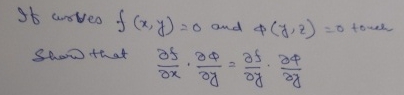 If curves f(x,y)=0 and φ(y,z)=0 touch
Show that ∂f/∂x · ∂φ/∂y = ∂f/∂y · ∂φ/∂y